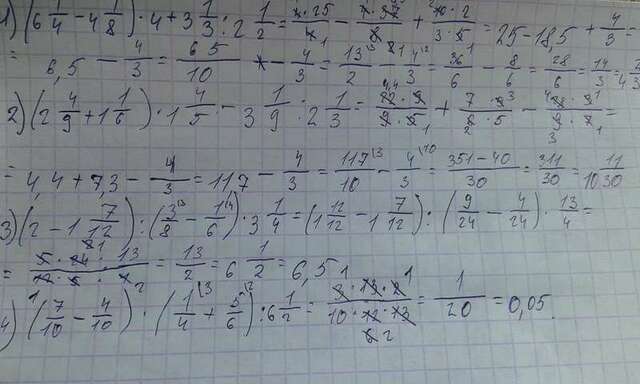 1) (6 1/4 - 4 1/8) · 4 + 3 1/3 : 2 1/2 = 4·25/4 - 4·37/8 + 10·2/3·5 = 25 - 18,5 + 4/3 =
= 6,5 - 4/3 = 65/10 - 4/3 = 13/2 - 4/3 = 36/6 - 8/6 = 28/6 = 14/3 = 4 2/3
2) (2 4/9 + 1 1/6) · 1 4/5 - 3 1/9 : 2 1/3 = 22·9/9·5 + 7·9/6·5 - 28·3/9·7 =
= 4,4 + 7,3 - 4/3 = 11,7 - 4/3 = 117/10 - 4/3 = 351-40/30 = 311/30 = 10 11/30
3) (2 - 1 7/12) : (3/8 - 1/6) · 3 1/4 = (1 12/12 - 1 7/12) : (9/24 - 4/24) · 13/4 =
= 5·24·13/12·5·4 = 13/2 = 6 1/2 = 6,5
4) (7/10 - 4/10) · (1/4 + 5/6) : 6 1/2 = 3·13·2/10·12·13 = 1/20 = 0,05.